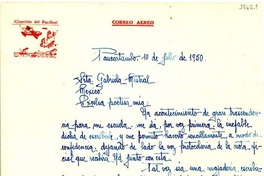 CORREO AEREO
Paucartambo. 10 de julio de 1950.
Srta. Gabriela Mistral
Mexico.
Excelsa poetisa mia:
Un acontecimiento de gran trascenden-
cia para mi escuela, me da, por vez primera, la inefable
dicha de escribirle, y me permito hacerlo sencillamente a modo de
confidencia, dejando de lado la voz protocolaria, de la nota, ofi-
cial que recibirá Ud. junto con esta.
Tal vez sea una majadera, escribir